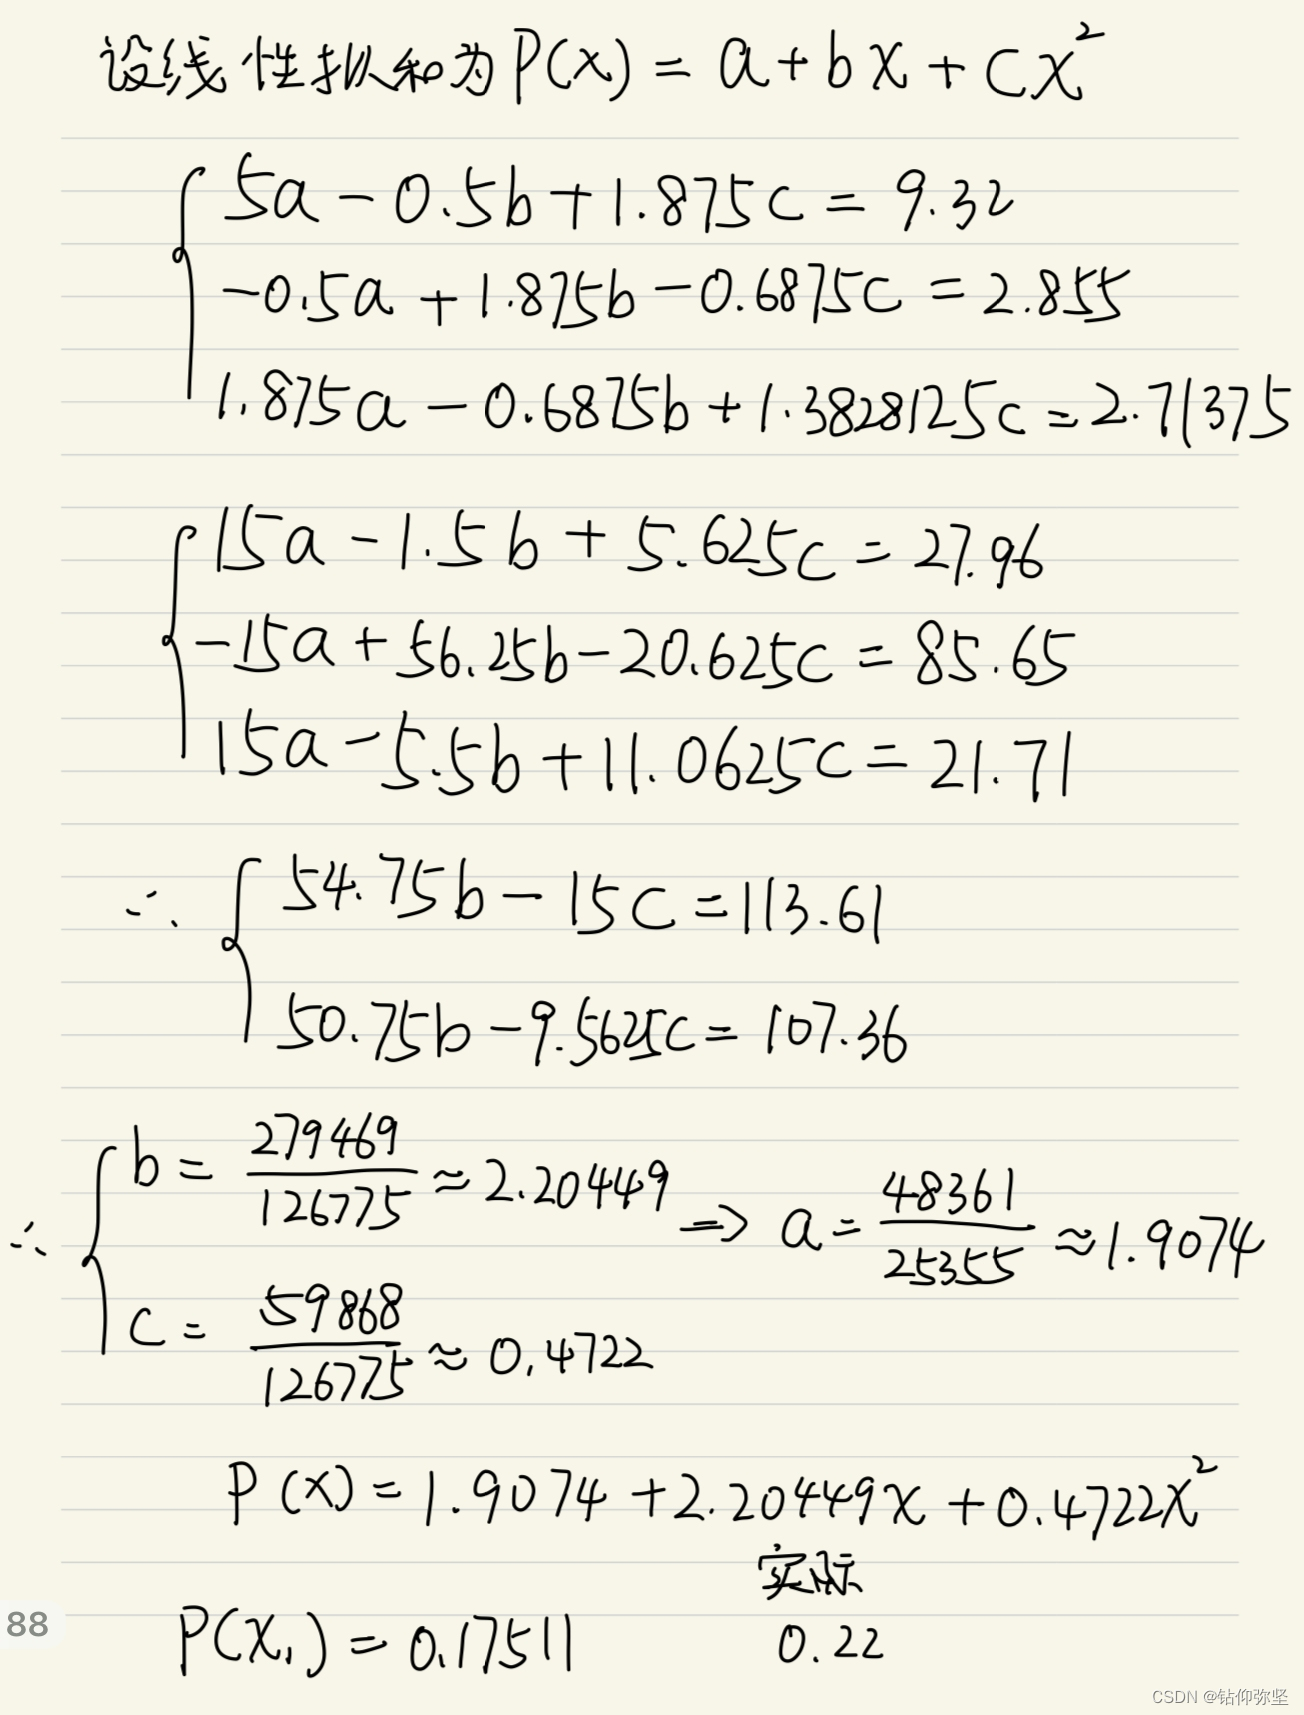 设线性拟和为P(x) = a + bx + cx²
5a - 0.5b + 1.875c = 9.32
-0.5a + 1.875b - 0.6875c = 2.855
1.875a - 0.6875b + 1.3828125c = 2.71375
15a - 1.5b + 5.625c = 27.96
-15a + 56.25b - 20.625c = 85.65
15a - 5.5b + 11.0625c = 21.71
∴ 54.75b - 15c = 113.61
50.75b - 9.5625c = 107.36
∴ b = 279469/126775 ≈ 2.20449 ⇒ a = 48361/25355 ≈ 1.9074
c = 59868/126775 ≈ 0.4722
P(x) = 1.9074 + 2.20449x + 0.4722x²
实际
P(x₁) = 0.17511 0.22
88
CSDN @钻仰弥坚